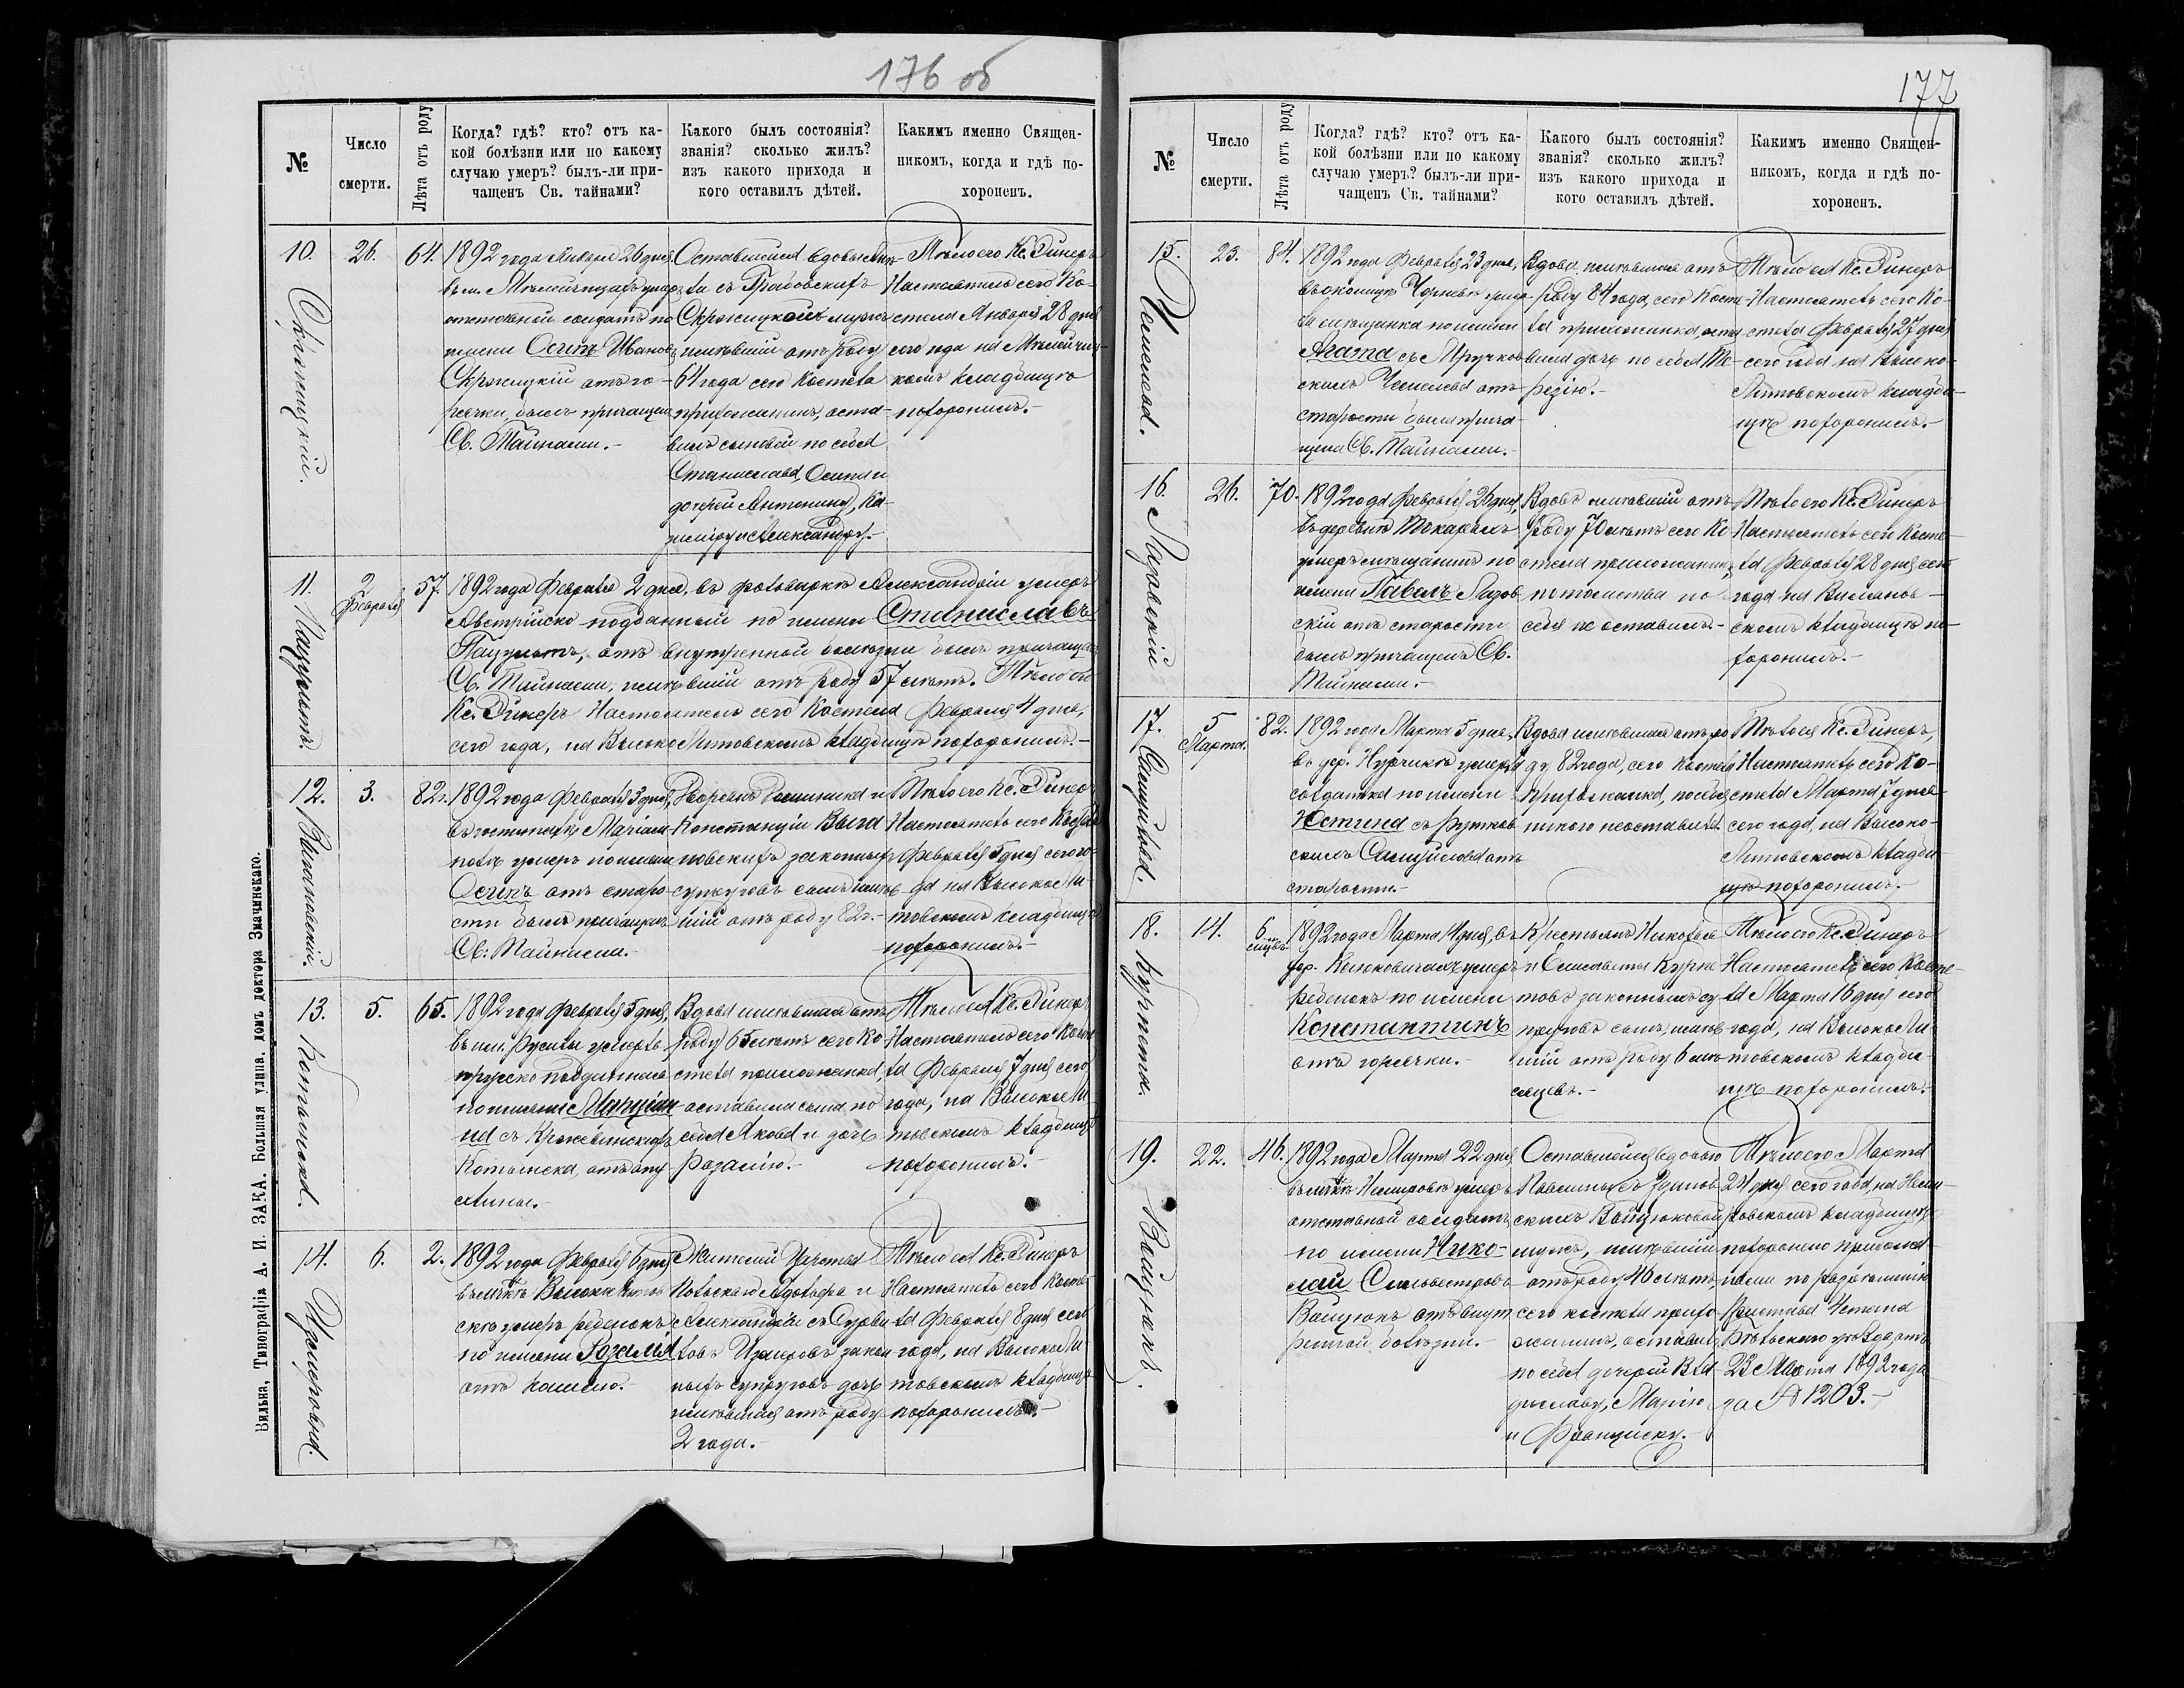 176 об
№
Число
смерти.
Лѣта отъ роду
Когда? гдѣ? кто? отъ ка-
кой болѣзни или по какому
случаю умеръ? былъ-ли при-
чащенъ Св. тайнами?
Какого былъ состоянія?
званія? сколько жилъ?
изъ какого прихода и
кого оставилъ дѣтей.
Какимъ именно Священ-
никомъ, когда и гдѣ по-
хороненъ.
10.
Скржицкій.
26.
64.
1892 года Января 26 дня
въ м. умеръ
отставной солдатъ по
имени Осипъ Ивановъ
Скржицкій отъ го-
рячки, былъ причащенъ
Св. Тайнами.-
Оставшейся вдовы
съ Грабовскихъ
Скржицкой мужъ
жившій отъ роду
64 года сего Костела
прихожанинъ, оста-
вилъ сыновей по себѣ
Станислава, Осипа и
дочерей Антонину, Ка-
зимиру и Александру.-
Тѣло его Кс. Гинеръ
Настоятель сего Ко-
стела Января 28 дня
сего года на
комъ кладбищѣ
похоронилъ.-
11.
2
Февраля
57.
1892 года Февраля 2 дня, въ фольваркѣ Александріи умеръ
Австрійско подданный по имени Станиславъ
отъ внутренной болѣзни былъ причащенъ
Св. Тайнами, жившій отъ роду 57 лѣтъ. Тѣло его
Кс. Гинеръ Настоятель сего Костела Февраля 4 дня,
сего года, на Высоколитовскомъ кладбищѣ похоронилъ.-
12.
3.
82.
1892 года Февраля 3 дня,
въ Маріам-
полѣ умеръ по имени
Осипъ отъ старо-
сти былъ причащенъ
Св. Тайнами.
Дворянъ Доминика и
Констанціи
новскихъ законныхъ
супруговъ сынъ жив-
шій отъ роду 82 г.-
Тѣло его Кс. Гинеръ
Настоятель сего Костела
Февраля 5 дня сего го-
да на Высоколи-
товскомъ кладбищѣ
похоронилъ.-
13.
5.
65.
1892 года Февраля 5 дня,
въ им. умерла
прусско подданная
по имени Марціан-
на съ
отъ опу-
холины.
Вдова жившая отъ
роду 65 лѣтъ сего Ко-
стела прихожанка,
оставила сына по
себѣ Якова и дочь
Розалію.-
Тѣло ея Кс. Гинеръ
Настоятель сего Косте-
ла Февраля 7 дня сего
года, на Высоколи-
товскомъ кладбищѣ
похоронилъ.-
14.
6.
2.
1892 года Февраля 6 дня
въ мѣст. Высоколитов-
скѣ умеръ ребенокъ
по имени Розалія
отъ кашлю.-
Жителей Царства
Польскаго Адольфа и
Александріи съ
законн-
ныхъ супруговъ дочь
жившая отъ роду
2 года.-
Тѣло ея Кс. Гинеръ
Настоятель сего Косте-
ла Февраля 8 дня сего
года, на Высоколи-
товскомъ кладбищѣ
похоронилъ.
Вильна, Типографія А. И. ЗАКА. Большая улица, домъ доктора Змачинскаго.
177
№
Число
смерти.
Лѣта отъ роду
Когда? гдѣ? кто? отъ ка-
кой болѣзни или по какому
случаю умеръ? былъ-ли при-
чащенъ Св. тайнами?
Какого былъ состоянія?
званія? сколько жилъ?
изъ какого прихода и
кого оставилъ дѣтей.
Какимъ именно Священ-
никомъ, когда и гдѣ по-
хороненъ.
15.
23.
84.
1892 года Февраля 23 дня,
въ околицѣ умер-
ла мѣщанка по имени
Агата съ
скихъ отъ
старости была прича-
щена Св. Тайнами.-
Вдова жившая отъ
роду 84 года, сего Косте-
ла прихожанка, оста-
вила дочь по себѣ Те-
резію.-
Тѣло ея Кс. Гинеръ
Настоятель сего Ко-
стела Февраля 27 дня
сего года на Высоко-
Литовскомъ кладби-
щѣ похоронилъ.-
16.
Лазовскій
26.
70.
1892 года Февраля 26 дня,
въ деревнѣ Токарахъ
умеръ мѣщанинъ по
имени Павелъ Лазов-
скій отъ старости
былъ причащенъ Св.
Тайнами.-
Вдовъ жившій отъ
роду 70 лѣтъ сего Ко-
стела прихожанинъ,
потомства по
себѣ не оставилъ.-
Тѣло его Кс. Гинеръ
Настоятель сего Косте-
ла Февраля 28 дня сего
года на
скомъ кладбищѣ по-
хоронилъ.-
17.
Самуйлова.
5
Марта.
82.
1892 года Марта 5 дня,
въ дер. умерла
солдатка по имени
Юстина съ Рутков-
скихъ Самуйлова отъ
старости.-
Вдова жившая отъ ро-
ду 82 года, сего Костела
прихожанка, по себѣ
никого не оставила.
Тѣло ея Кс. Гинеръ,
Настоятель сего Ко-
стела Марта 7 дня
сего года, на Высоко-
Литовскомъ кладби-
щѣ похоронилъ.-
18.
Курпета.
14.
6
мѣсяц.
1892 года Марта 14 дня, въ
дер. умеръ
ребенокъ по имени
Константинъ
отъ горячки.-
Крестьянъ Николая
и Елисаветы Курпе-
товъ законныхъ су-
пруговъ сынъ, жив-
шій отъ роду 6 мѣ-
сяцевъ.-
Тѣло его Кс. Гинеръ
Настоятель сего Косте-
ла Марта 16 дня сего
года, на Высоколи-
товскомъ кладби-
щѣ похоронилъ.-
19.
Вайцюкъ.
22.
46.
1892 года Марта 22 дня
въ мѣст. Немировѣ умеръ
отставной солдатъ
по имени Нико-
лай Сильвестровъ
Вайцюкъ отъ внут-
ренной болѣзни.-
Оставшейся вдовою
Павлины съ
скихъ Вайцюковой
мужъ, жившій
отъ роду 46 лѣтъ,
сего костела прихо-
жанинъ, оставилъ
по себѣ дочерей Вла-
диславу, Марію
и Францишку.-
Тѣло его Марта
24 дня сего года, на Неми-
ровскомъ кладбищѣ
похоронено
по разрѣшенію
Пристава 4 стана
Бѣльскаго уѣзда, отъ
23 Марта 1892 года
за № 1203.-